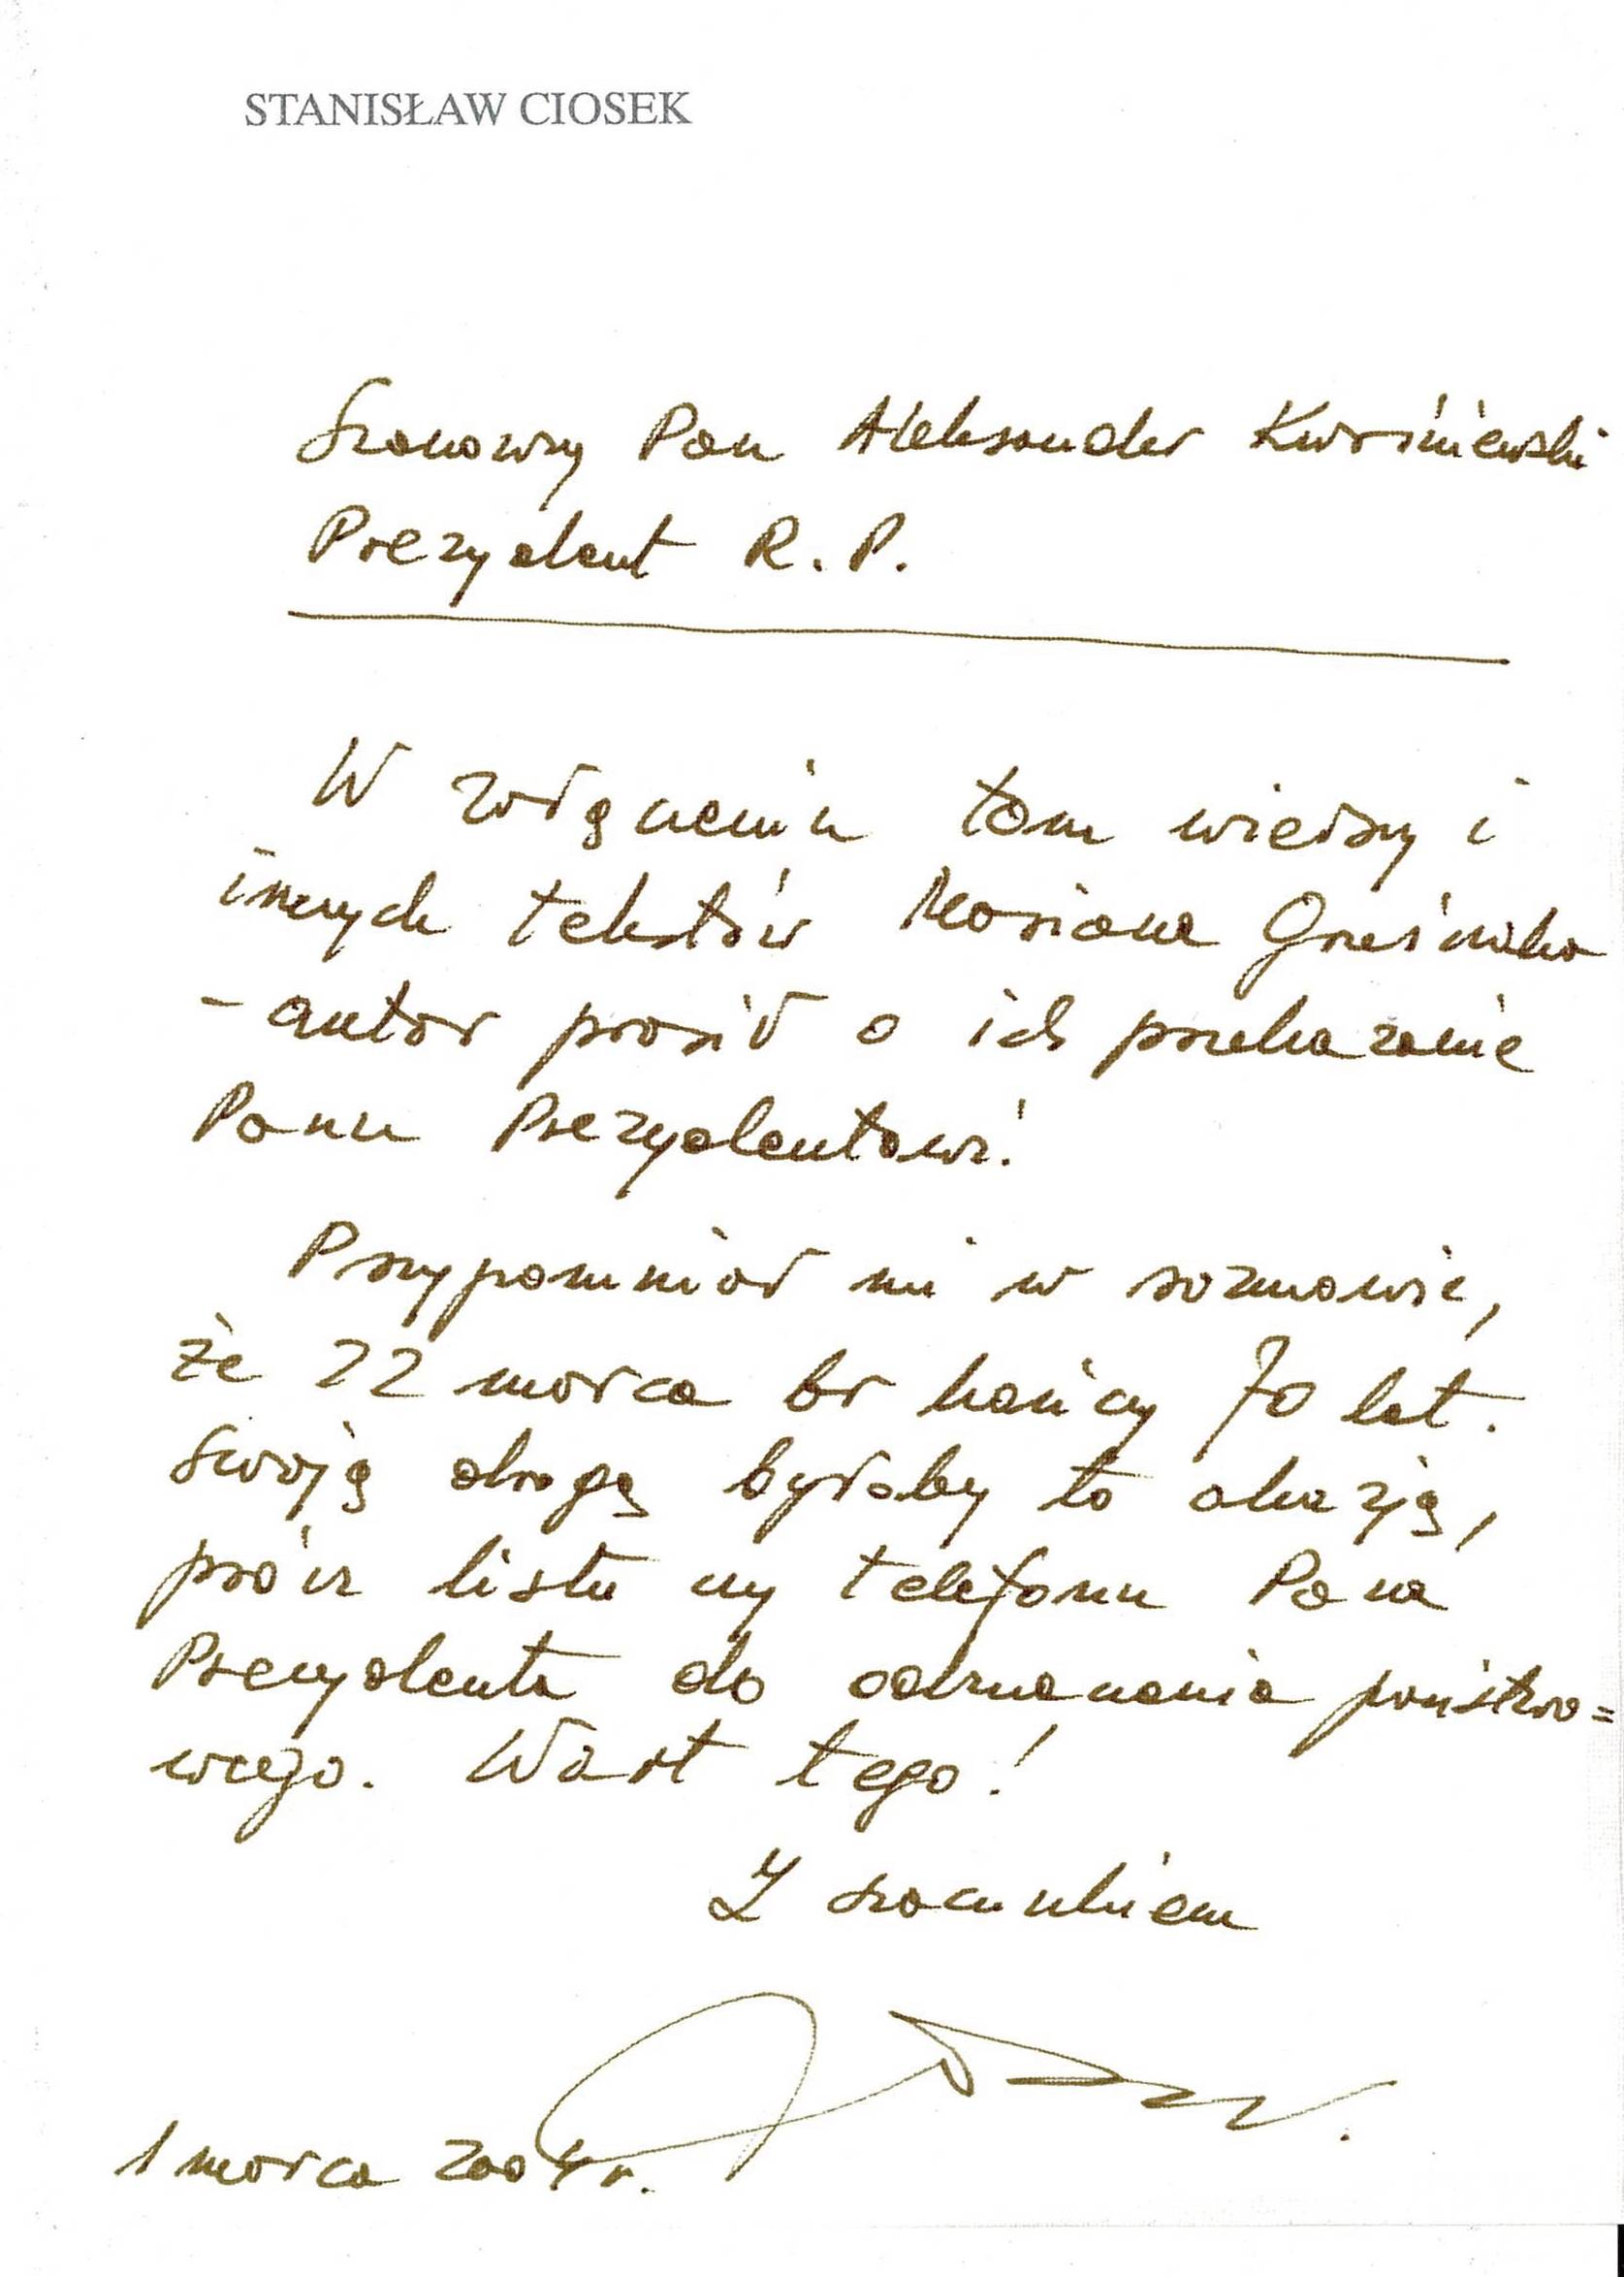 STANISŁAW CIOSEK
Szanowny Pan Aleksander Kwaśniewski
Prezydent R.P.
W załączeniu tom wierszy i
innych tekstów Mariana Grześczaka
- autor prosił o ich przekazanie
Panu Prezydentowi.
Przypomniał mi w rozmowie,
że 22 marca br kończy 70 lat.
Swoją drogą byłaby to okazją,
prócz listu czy telefonu Pana
Prezydenta do odznaczenia państwo=
wego. Wart tego!
Z szacunkiem
1 marca 2004 r.